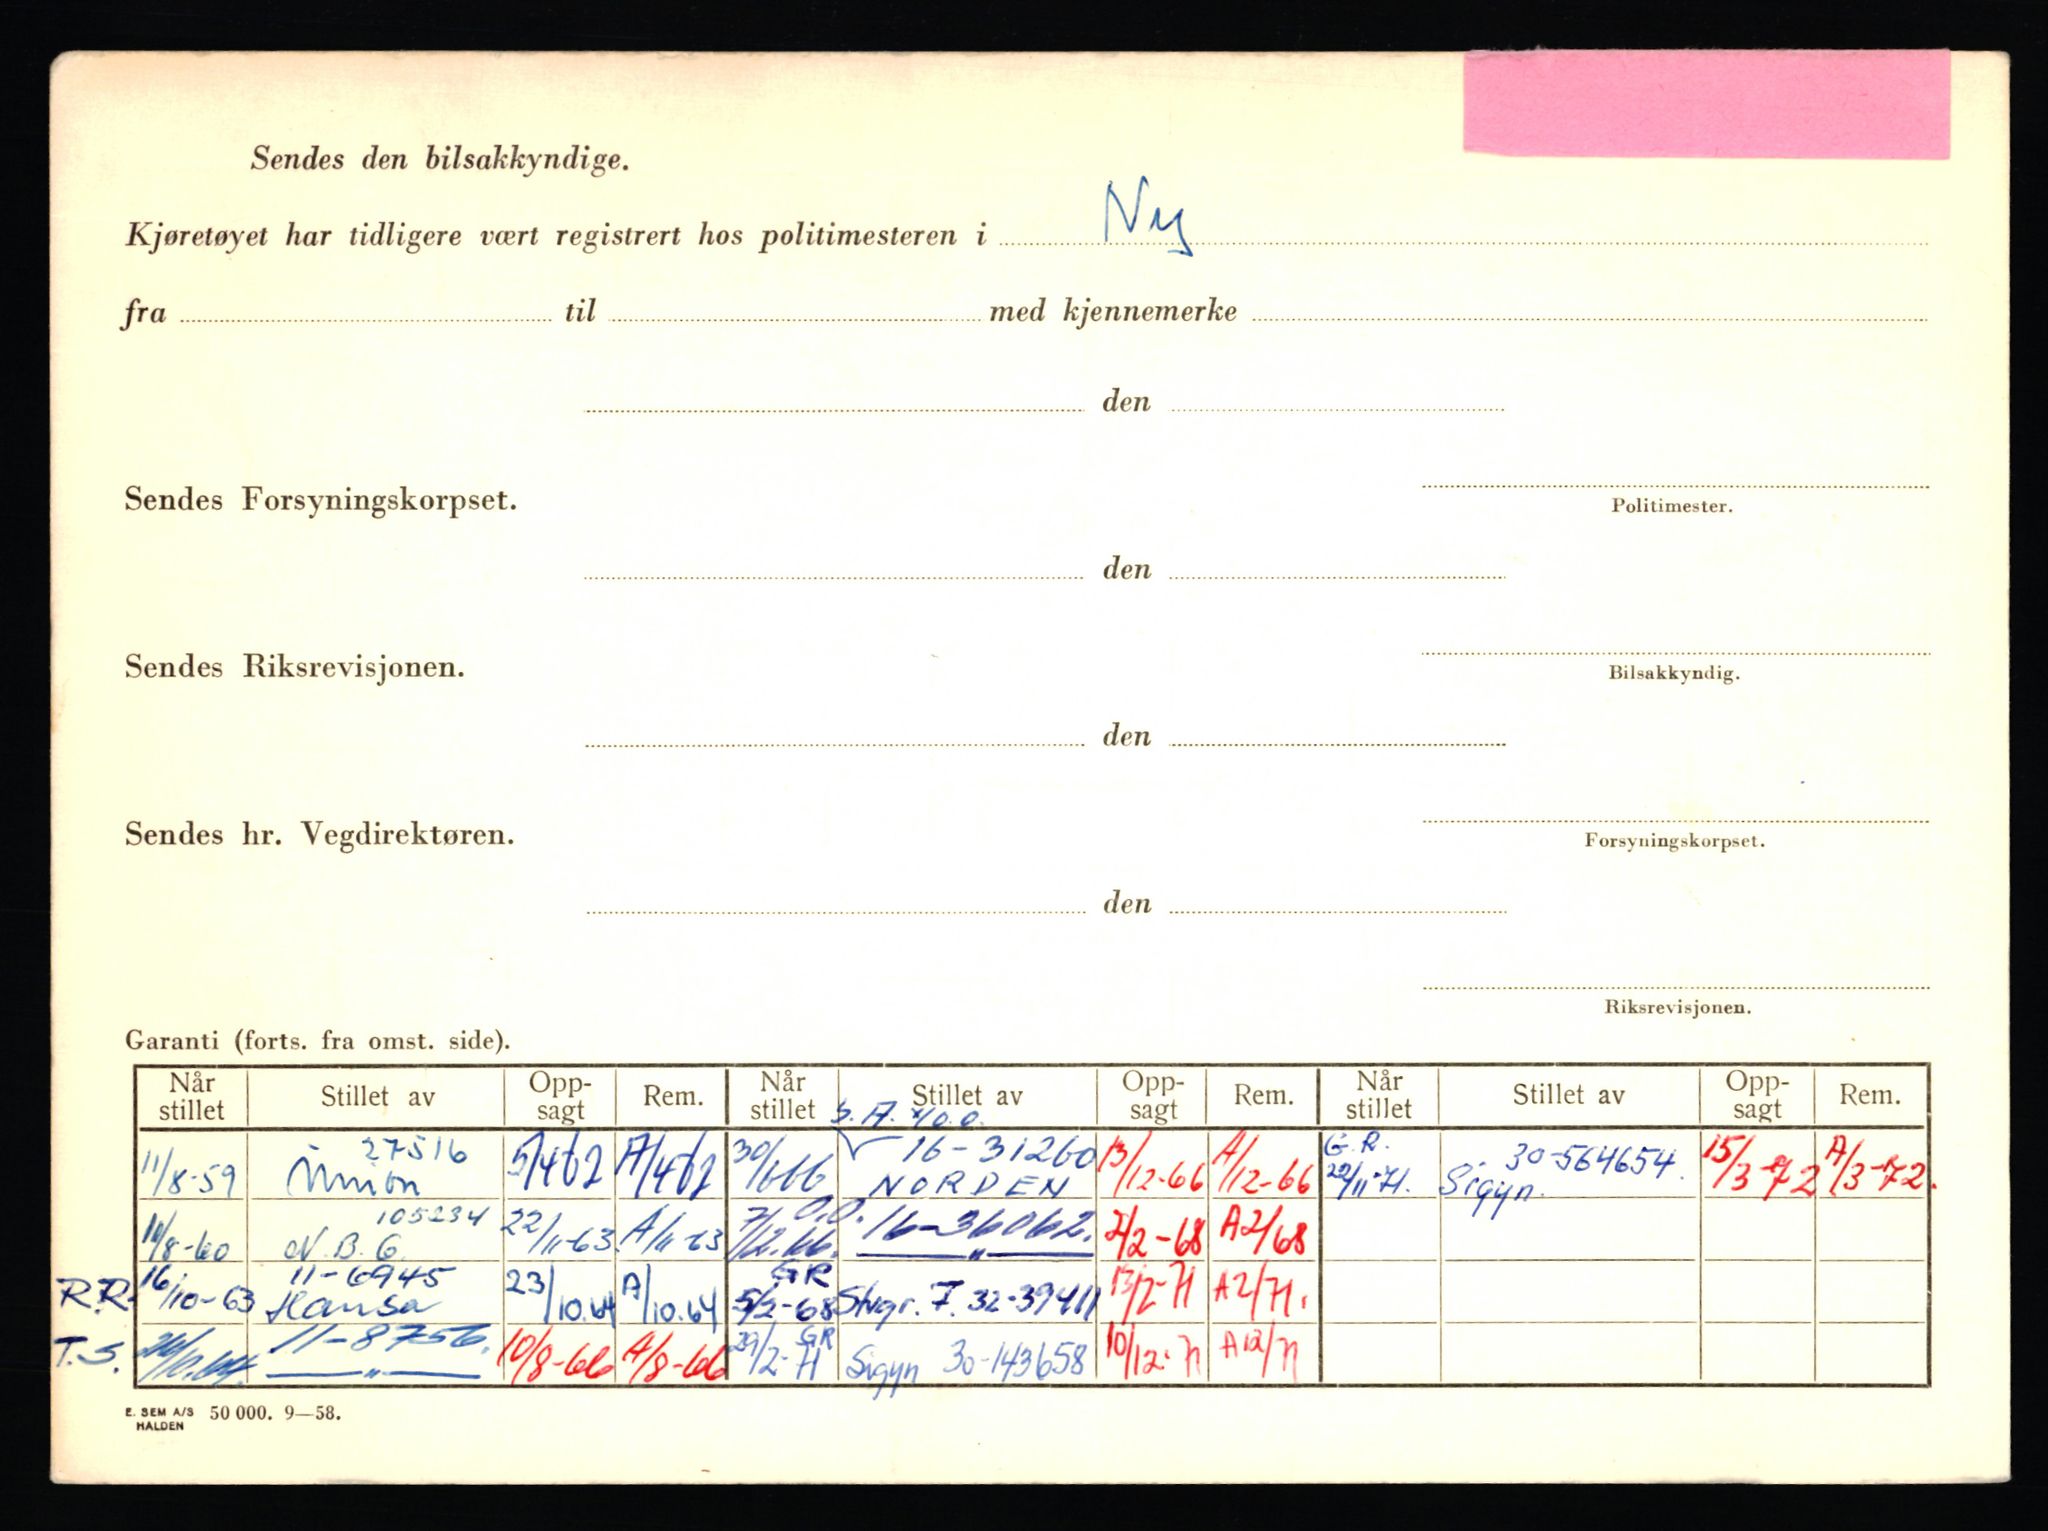 Sendes den bilsakkyndige.
Kjøretøyet har tidligere vært registrert hos politimesteren i Ny
fra til med kjennemerke
den
Sendes Forsyningskorpset.
Politimester.
den
Sendes Riksrevisjonen.
Bilsakkyndig.
den
Sendes hr. Vegdirektøren.
Forsyningskorpset.
den
Riksrevisjonen.
Garanti (forts. fra omst. side).
Når stillet Stillet av Opp-sagt Rem. Når stillet Stillet av Opp-sagt Rem. Når stillet Stillet av Opp-sagt Rem.
27516 16-31260 G.R. 30-564654.
11/8-59 Union 5/4 62 A/4 62 30/1 66 NORDEN 13/12-66 A/12-66 22/11-71. Sigyn. 15/3-72 A/3-72.
105234 O.O.
11/8-60 N.B.G. 22/11-63 A/11-63 7/12.66. 16-36062. 2/2-68 A2/68
11-6945 GR
R.R. 16/10-63 Hansa 23/10.64 A/10.64 5/2-68 Stvgr. 7. 32-39411 13/2-71 A2/71.
T.S. 11-8756. 10/8-66 A/8-66 29/2-71 GR Sigyn 30-143658 10/12-71 A12/71
E. SEM A/S 50 000. 9—58.
HALDEN